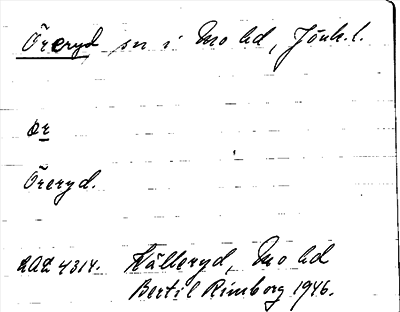 Öreryd sn i Mo hd, Jönk.l.
Or
Öreryd.
4314. Källeryd, Mo hd
Bertil Rimborg 1946.